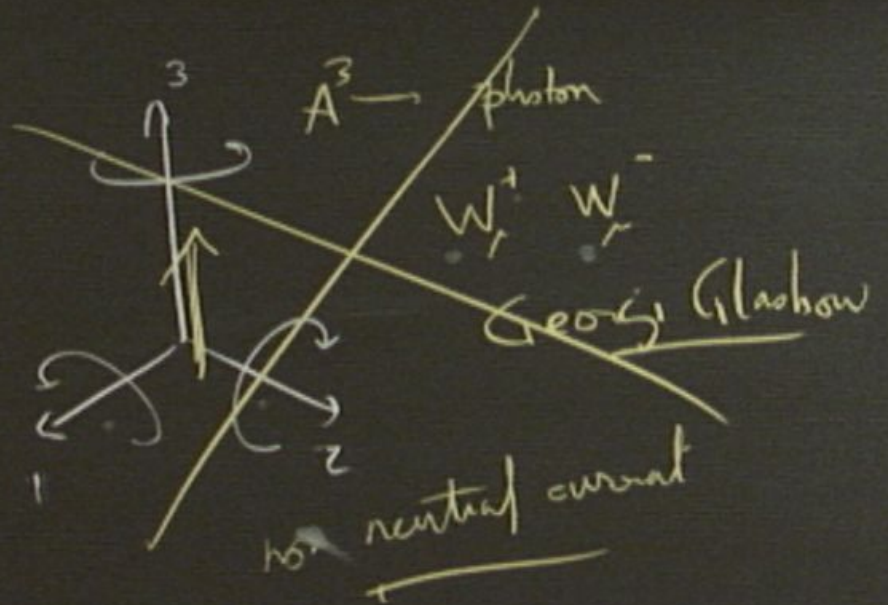 3
A³ — photon
W⁺μ W⁻μ
Georgi Glashow
1
2
no neutral current